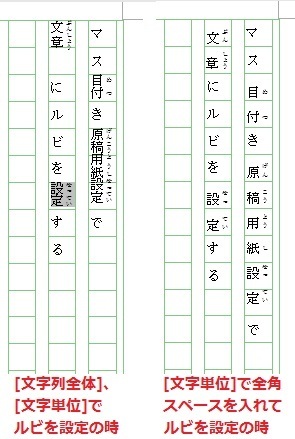 マス目付き原稿用紙設定で
文章にルビを設定する
[文字列全体]、
[文字単位]で
ルビを設定の時
マス目付き原稿用紙設定で
文章にルビを設定する
[文字単位]で全角
スペースを入れて
ルビを設定の時